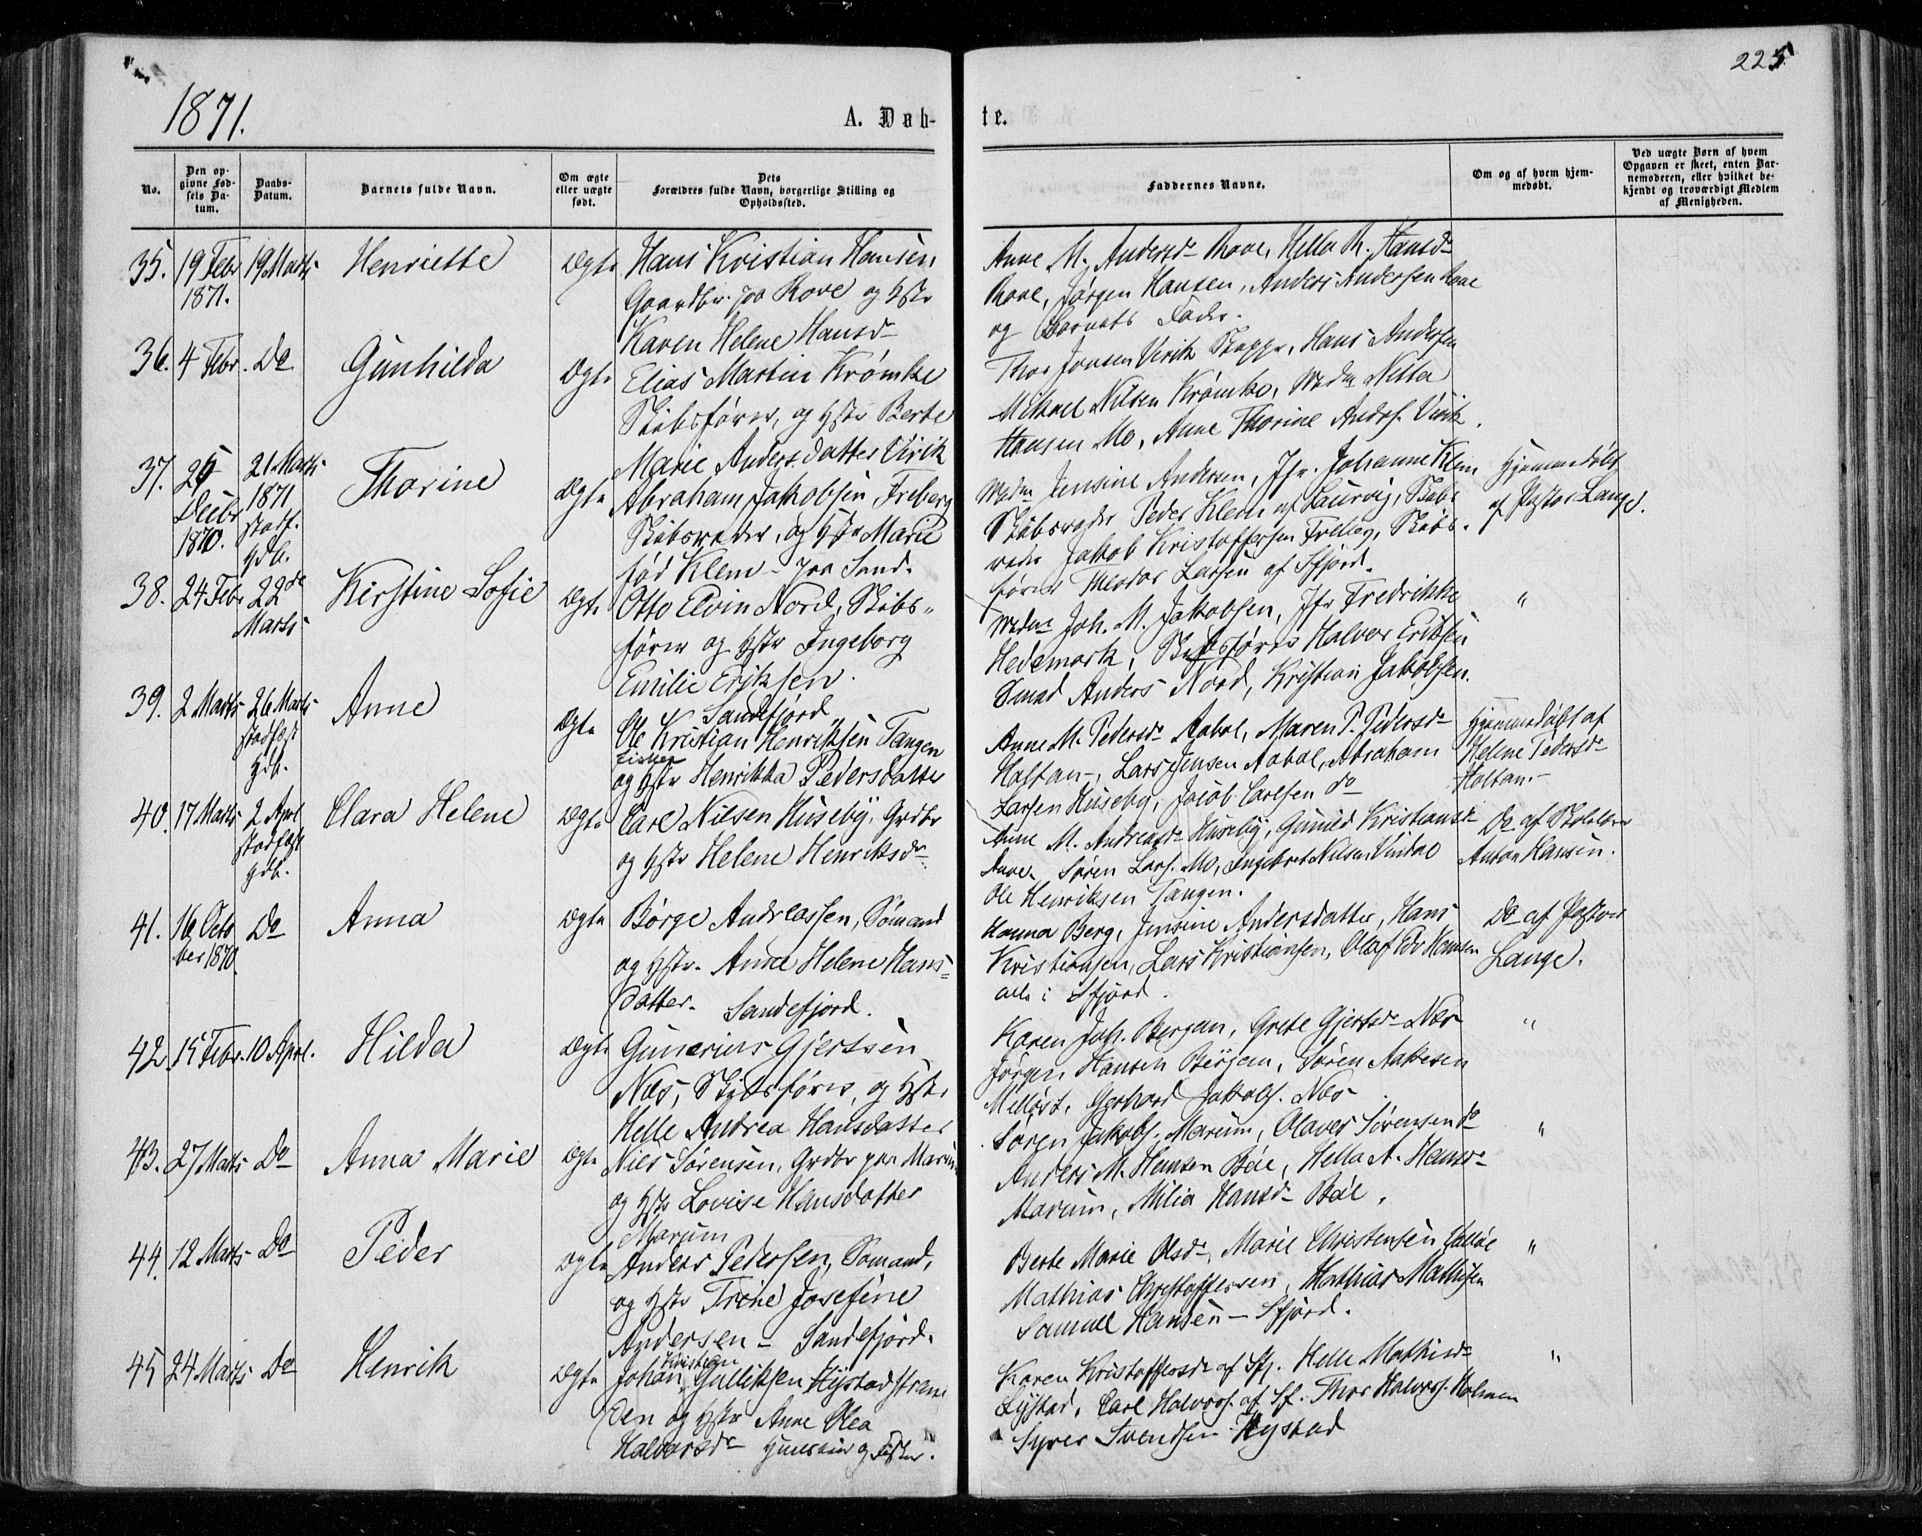 1871.
A. Døb-
te.
225
No.
Den op-
givne Fød-
sels Da-
tum.
Daabs-
Datum.
Barnets fulde Navn.
Om ægte
eller uægte
født.
Dets
Forældres fulde Navn, borgerlige Stilling og
Opholdssted.
Faddernes Navne.
Om og af hvem hjem-
medøbt.
Ved uægte Børn af hvem
Opgaven er skeet, enten Bar-
nemoderen, eller hvilket be-
kjendt og troværdigt Medlem
af Menigheden.
35. 19 Febr 1871. 19 Marts Henriette Ægte
Hans Kristian Hansen,
Gaardbr. paa Rove og Hstr
Karen Helene Hansd
Anne M. Andersd Rove, Helle R. Hansd
Rove, Jørgen Hansen, Anders Andersen Rove
og Barnets Fader.
36. 4 Febr. Do Gunhilda Ægte
Elias Martin Krømke
Skibsfører, og Hstr Berte
Marie Andersdatter Virik
Thor Jensen Virik, Hans Andersen
Mikael Nilsen Krømke, Mdm Nilla
Hansen Mo, Anne Thorine Anders. Virik.
37. 25 Decbr 1870. 21 Marts 1871 stadf. hdb. Thorine Ægte
Abraham Jakobsen Freberg
Skibsreder, og Hstr Marie
fød Klem - paa Sand.
Mdm Jensine Andersen, Jfr. Johanne Klem
Skibsreder Peder Klem af Laurvig, Skibs-
reder Jakob Kristoffersen Freberg, Skibs-
fører Theodor Larsen af Sfjord.
Hjemmedøbt
af Pastor Lange.
38. 24 Febr 22de Marts Kirstine Sofie Ægte
Otto Elvin Nord, Skibs-
fører og Hstr Ingeborg
Emilie Eriksen.
Sandefjord
Mdm Joh. M. Jakobsen, Jfr Fredrikke
Hedemark, Skibsfører Halvor Eriksen
Smed Anders Nord, Kristian Jakobsen.
"
39. 2 Marts 26 Marts stadfæst hdb. Anne Ægte
Ole Kristian Henriksen Tangen
Fisker
og Hstr Henrikka Pedersdatter
Anne M. Pedersd Aabol, Maren P. Pedersd
Haltan, Lars Jensen Aabol, Abraham
Larsen Huseby, Jacob Carlsen do
Hjemmedøbt af
Helene Pedersd
Holtan.
40. 17 Marts 2 April stadfæst hdb. Clara Helene Ægte
Carl Nilsen Huseby, Grdbr
og Hstr Helene Henriksd
Anne M. Andreasd Huseby, Gunild Kristiansd
Søren Lars. Mo, Ingebret Nilsen Vindal
Ole Henriksen Tangen.
Do af Skolelærer
Anton Hansen.
41. 16 October 1870. Do Anna Ægte
Børge Andreassen, Sømand
og Hstr. Anne Helene Hans-
datter. Sandefjord.
Hanna Berg, Jensine Andersdatter, Hans
Kristiansen, Lars Kristiansen, Olaf Edv Hansen
alle i Sfjord.
Do af Pastor
Lange.
42. 15 Febr. 10 Apr. Hilda Ægte
Gunerius Gjertsen
Næs, Skibsfører, og Hstr
Helle Andrea Hansdatter
Karen Joh. Bergan, Grete Gjertsd Næs
Jørgen Hansen Bergan, Søren Aakesen
Milløst, Gerhard Jakobs. Næs
"
43. 27 Marts Do Anna Marie Ægte
Nils Sørensen, Grdbr paa Marum
og Hstr Lovise Hansdatter
Marum
Søren Jakobs. Marum, Olaves Sørensen do
Anders M. Hansen Bøe, Helle A. Hansd
Marum, Milia Hansd Bøe.
"
44. 12 Marts Do Peder Ægte
Anders Pedersen, Sømand,
og Hstr Trine Josefine
Andersen - Sandefjord.
Berte Marie Olsd, Marie Christensen
Mathias Christoffersen, Mathias Mathisen
Samuel Hansen - Sfjord.
"
45 24 Marts Do Henrik Ægte
Johan Kristian Gulliksen Hystadstran
den og Hstr Anne Olea
Halvorsd Huuseier og Fisker.
Karen Kristoffersd af Sfj. Helle Mathisd
Hystad, Carl Halvors. af Sf. Thor Halvors. Holmen
Syver Svendsen Hystad
"